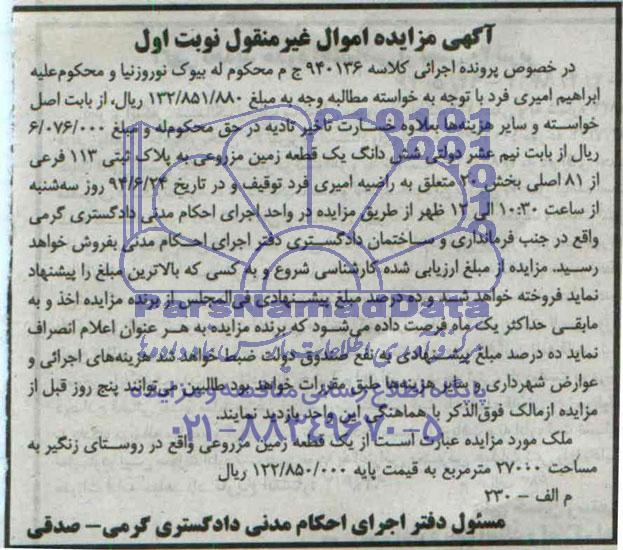 آگهی مزایده اموال غیرمنقول نوبت اول
در خصوص پرونده اجرائی کلاسه ۹۴۰۱۳۶ ج م محکوم له بیوک نوروزنیا و محکوم‌علیه
ابراهیم امیری فرد با توجه به خواسته مطالبه وجه به مبلغ ۱۳۲/۸۵۱/۸۸۰ ریال، از بابت اصل
خواسته و سایر هزینه‌ها بعلاوه خسارت تأخیر تادیه در حق محکوم‌له و مبلغ ۶/۰۷۶/۰۰۰
ریال از بابت نیم عشر دولتی شش دانگ یک قطعه زمین مزروعی به پلاک ثبتی ۱۱۳ فرعی
از ۸۱ اصلی بخش ۲۰ متعلق به راضیه امیری فرد توقیف و در تاریخ ۹۴/۶/۲۴ روز سه‌شنبه
از ساعت ۱۰:۳۰ الی ۱۲ ظهر از طریق مزایده در واحد اجرای احکام مدنی دادگستری گرمی
واقع در جنب فرمانداری و ساختمان دادگستری دفتر اجرای احکام مدنی بفروش خواهد
رسید. مزایده از مبلغ ارزیابی شده کارشناسی شروع و به کسی که بالاترین مبلغ را پیشنهاد
نماید فروخته خواهد شد و ده درصد مبلغ پیشنهادی فی‌المجلس از برنده مزایده اخذ و به
مابقی حداکثر یک ماه فرصت داده می‌شود که برنده مزایده به هر عنوان اعلام انصراف
نماید ده درصد مبلغ پیشنهادی به نفع صندوق دولت ضبط خواهد شد هزینه‌های اجرائی و
عوارض شهرداری و سایر هزینه‌ها طبق مقررات خواهد بود طالبین می‌توانند پنج روز قبل از
مزایده ازمالک فوق‌الذکر با هماهنگی این واحد بازدید نمایند.
ملک مورد مزایده عبارت است از یک قطعه زمین مزروعی واقع در روستای زنگیر به
مساحت ۲۷۰۰۰ مترمربع به قیمت پایه ۱۲۲/۸۵۰/۰۰۰ ریال
م الف - ۲۳۰
مسئول دفتر اجرای احکام مدنی دادگستری گرمی- صدقی
ParsNamadData
پایگاه اطلاع رسانی مناقصه و مزایده
۰۲۱-۸۸۳۴۹۶۷۰-۵